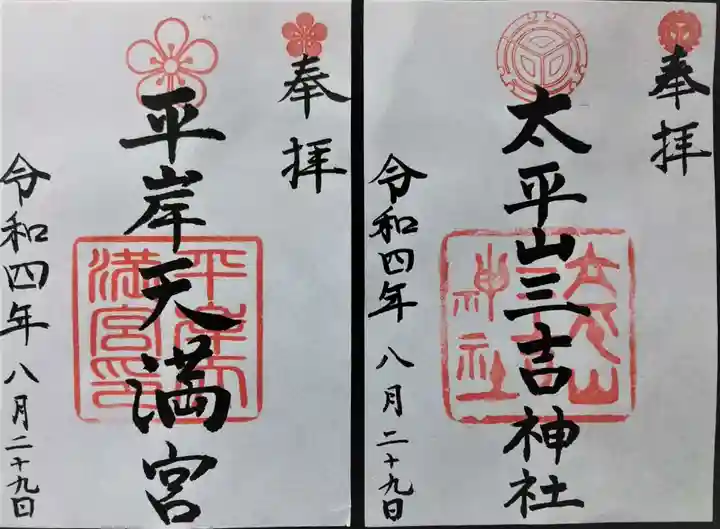 奉拝
太平山三吉神社
令和四年八月二十九日
奉拝
平岸天満宮
平岸天満宮印
令和四年八月二十九日